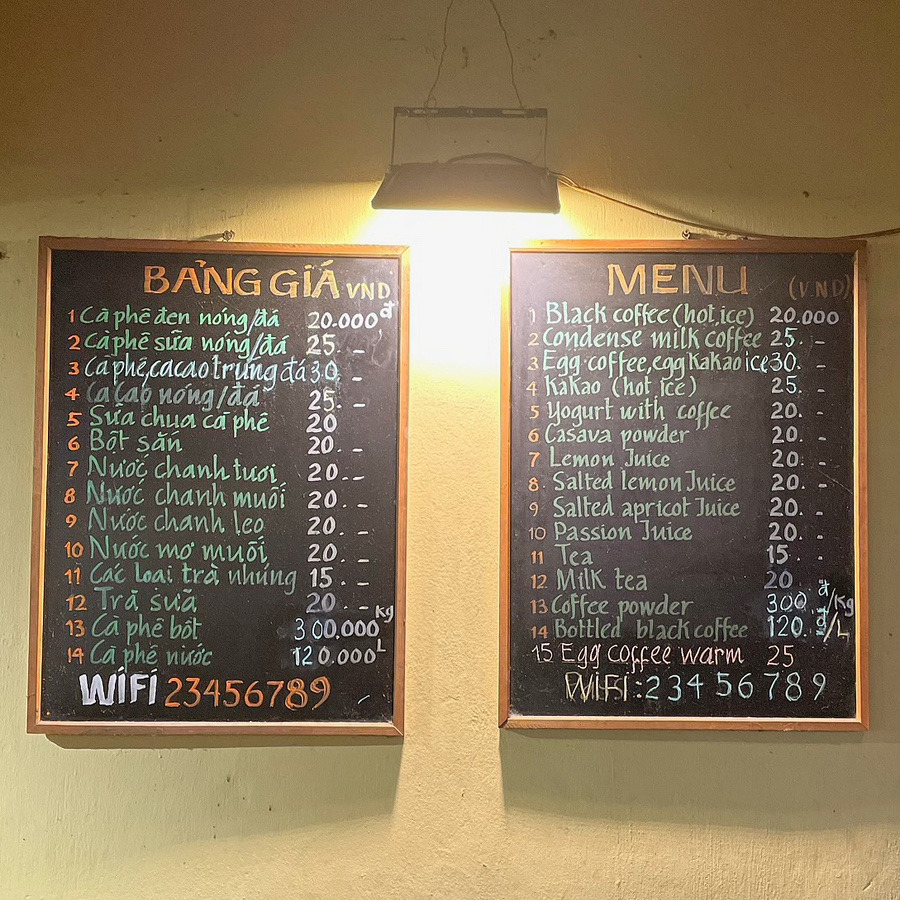 BẢNG GIÁ VND
1 Cà phê đen nóng/đá 20.000đ
2 Cà phê sữa nóng/đá 25. -
3 Cà phê, cacao trứng đá 30. -
4 Ca cao nóng/đá 25. -
5 Sữa chua cà phê 20 -
6 Bột sắn 20. -
7 Nước chanh tươi 20. -
8 Nước chanh muối 20. -
9 Nước chanh leo 20. -
10 Nước mơ muối 20. -
11 Các loại trà nhúng 15. -
12 Trà sữa 20. -
13 Cà phê bột 300.000 Kg
14 Cà phê nước 120.000 L
WIFI 23456789
MENU (V.N.D)
1 Black coffee (hot,ice) 20.000
2 Condense milk coffee 25. -
3 Egg coffee, egg Kakao ice 30. -
4 Kakao (hot, ice) 25. -
5 Yogurt with coffee 20. -
6 Casava powder 20. -
7 Lemon Juice 20. -
8 Salted lemon Juice 20. -
9 Salted apricot Juice 20. -
10 Passion Juice 20. -
11 Tea 15. -
12 Milk tea 20. -
13 Coffee powder 300. đ/Kg
14 Bottled black coffee 120. đ/L
15 Egg coffee warm 25
WIFI: 23456789